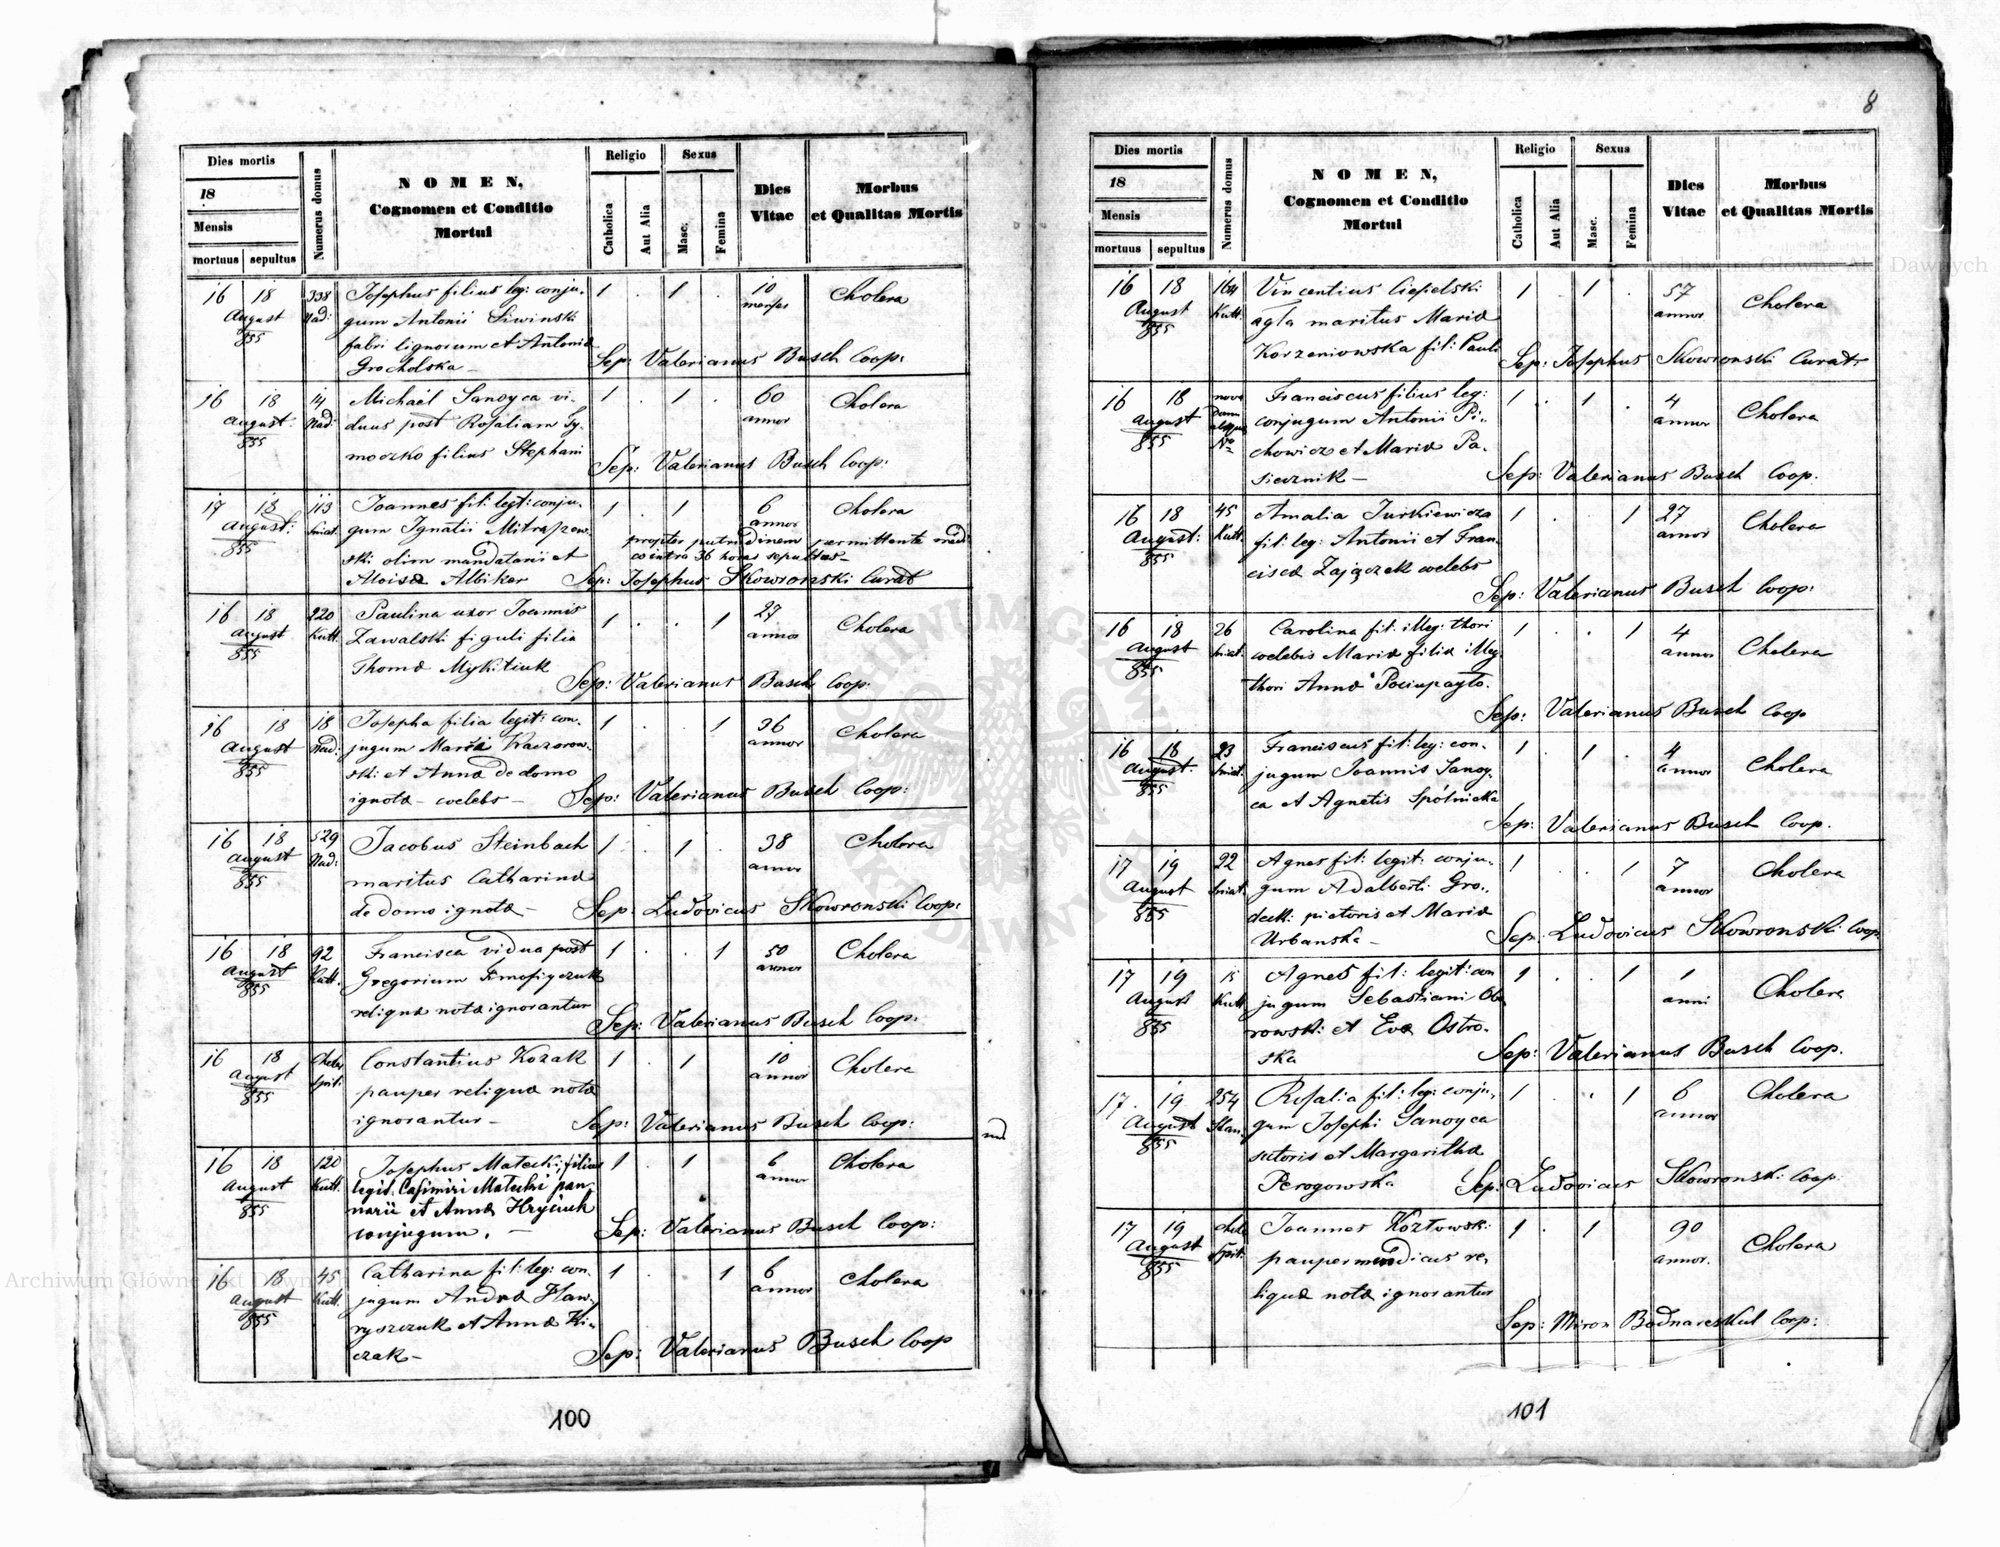 Dies mortis
18
Mensis
mortuus sepultus
Numerus domus
NOMEN,
Cognomen et Conditio
Mortui
Religio
Catholica
Aut Alia
Sexus
Masc.
Femina
Dies
Vitae
Morbus
et Qualitas Mortis
16 18 338 Josephus filius leg: conju- 1 . 1 . 10 Cholera
August Nad: gum Antonii Siwinski menses
855 fabri lignorum et Antonia
Grocholska – Sep: Valerianus Busch Coop:
16 18 14 Michaël Sanoyca vi- 1 . 1 . 60 Cholera
August: Nad: duus post Rosaliam Ty- annor
855 moczko filius Stephani Sep: Valerianus Busch Coop:
17 18 113 Joannes fil: legt: conju- 1 . 1 6 Cholera
August: Sniat. gum Ignatii annor
855 ski olim mandatarii et propter putredinem permittente
Aloisæ Albiker intra 36 horas sepultus –
Sep: Josephus Skowronski Curat
16 18 220 Paulina uxor Joannis 1 . . 1 27 Cholera
August Kutt. Zawalski figuli filia annor
855 Thomæ Mykitiuk Sep: Valerianus Busch Coop:
16 18 18 Josepha filia legit: con- 1 . . 1 36 Cholera
August Nad: jugum Kaczorow- annor
855 ski et Annæ de domo
ignotæ – coelebs – Sep: Valerianus Busch Coop:
16 18 529 Jacobus Steinbach 1 . 1 . 38 Cholera
August Nad: maritus Catharinæ annor
855 de domo ignotæ – Sep: Ludovicus Skowronski Coop:
16 18 92 Francisca vidua post 1 . . 1 50 Cholera
August Kutt. Gregorium annor
855 reliqua nota ignorantur Sep: Valerianus Busch Coop:
16 18 Constantius Kozak 1 . 1 10 Cholera
August Spit: pauper reliqua nota annor
855 ignorantur – Sep: Valerianus Busch Coop:
16 18 120 Josephus Matecki, filius 1 . 1 6 Cholera
August Kutt. legit. Casimiri Matecki pan- annor
855 narii et Annæ Hryciuk
conjugum. – Sep: Valerianus Busch Coop:
16 18 45 Catharina fil: leg: con- 1 . 1 6 Cholera
August Kutt. jugum Andreæ Haw- annor
855 ryszczuk et Annæ Ki-
czak – Sep: Valerianus Busch Coop
100
8
Dies mortis
18
Mensis
mortuus sepultus
Numerus domus
NOMEN,
Cognomen et Conditio
Mortui
Religio
Catholica
Aut Alia
Sexus
Masc.
Femina
Dies
Vitae
Morbus
et Qualitas Mortis
16 18 164 Vincentius Ciepelski 1 . 1 . 57 Cholera
August Kutt. maritus Mariæ annor
855 Korzeniowska fil: Pauli Sep: Josephus Skowronski Curatr
16 18 Franciscus filius leg: 1 . 1 . 4 Cholera
August conjugum Antonii Pi- annor
855 No chowicz et Mariæ Pa-
siecznik – Sep: Valerianus Busch Coop.
16 18 45 Amalia Jurkiewicza 1 . . 1 27 Cholera
August: Kutt. fil: leg: Antonii et Fran- annor
855 ciscæ Zajączek coelebs Sep: Valerianus Busch Coop:
16 18 26 Carolina fil: illeg: thori 1 . . 1 4 Cholera
August Sniat. coelebis Mariæ filiæ illeg. annor
855 thori Annæ
Sep: Valerianus Busch Coop
16 18 23 Franciscus fil: leg: con- 1 . 1 . 4 Cholera
August: Sniat. jugum Joannis Sanoy- annor
855 ca et Agnetis Spólnicka
Sep: Valerianus Busch Coop.
17 19 22 Agnes fil: legit: conju- 1 . . 1 7 Cholera
August Sniat. gum Adalberti Gro- annor
855 decki pictoris et Mariæ
Urbanska – Sep: Ludovicus Skowronski Coop
17 19 Agnes fil: legit: con 1 . . 1 1 Cholera
August Kutt jugum Sebastiani Obo anni
855 rowski et Evæ Ostro-
ska Sep: Valerianus Busch Coop.
17. 19 254 Rosalia fil: leg: conju- 1 . . 1 6 Cholera
August Stan. gum Josephi Sanoyca annor
855 sutoris et Margarithæ
Perogowska Sep: Ludovicus Skowronski Coop:
17 19 Joannes Kozłowski 1 . 1 90 Cholera
August Spit: pauper mendicus re- annor.
855 liqua nota ignorantur
Sep: Miron Bodnareskul Coop:
101
Archiwum Główne Akt Dawnych
Archiwum Główne Akt Dawnych
ARCHIWUM GŁÓWNE AKT DAWNYCH